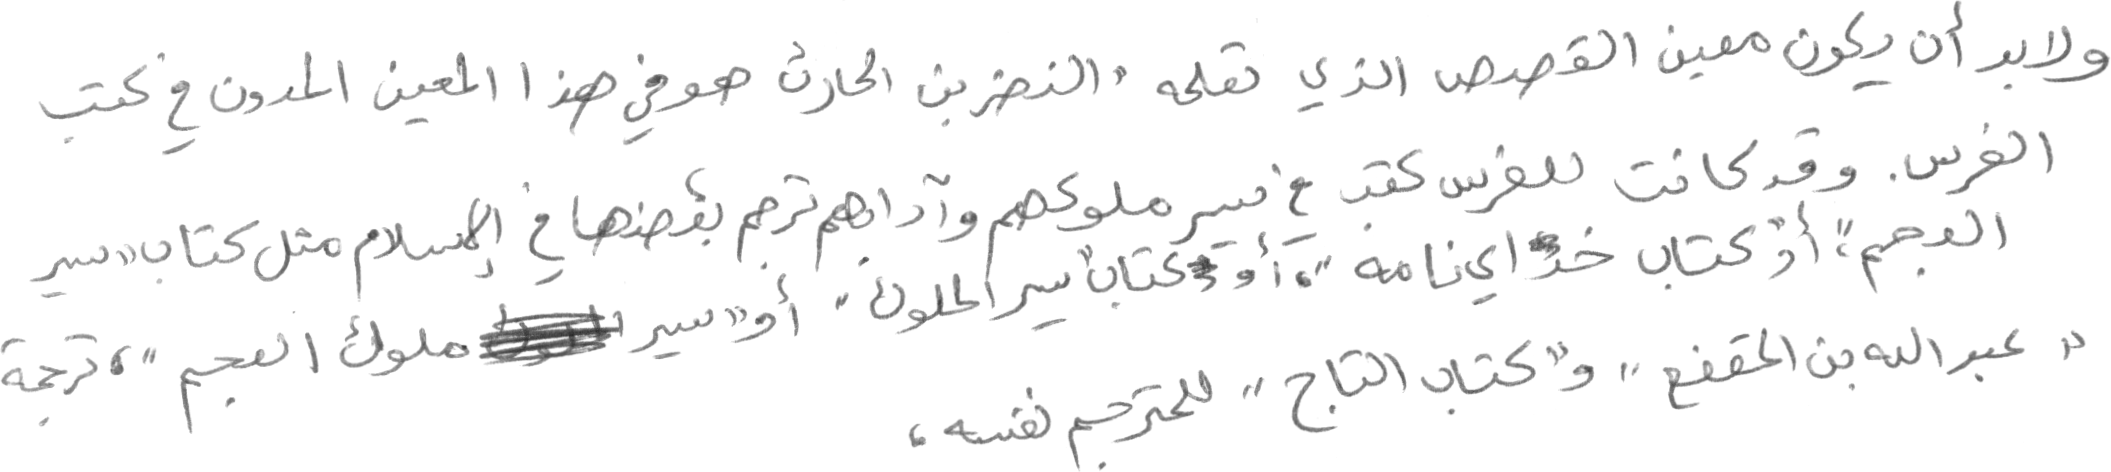 ولابد أن يكون معين القصص الذي نقله "النضر بن الحارث هو في هذا المعين المدون في كتب
الفرس. وقد كانت للفرس كتب في سير ملوكهم وآدابهم ترجم بعضها في الإسلام مثل كتاب "سير
العجم"، أو "كتاب خداي نامه"، أو "كتاب سير الملوك" أو "سير ملوك العجم"، ترجمة
"عبد الله بن المقفع" و"كتاب التاج" للمترجم نفسه،